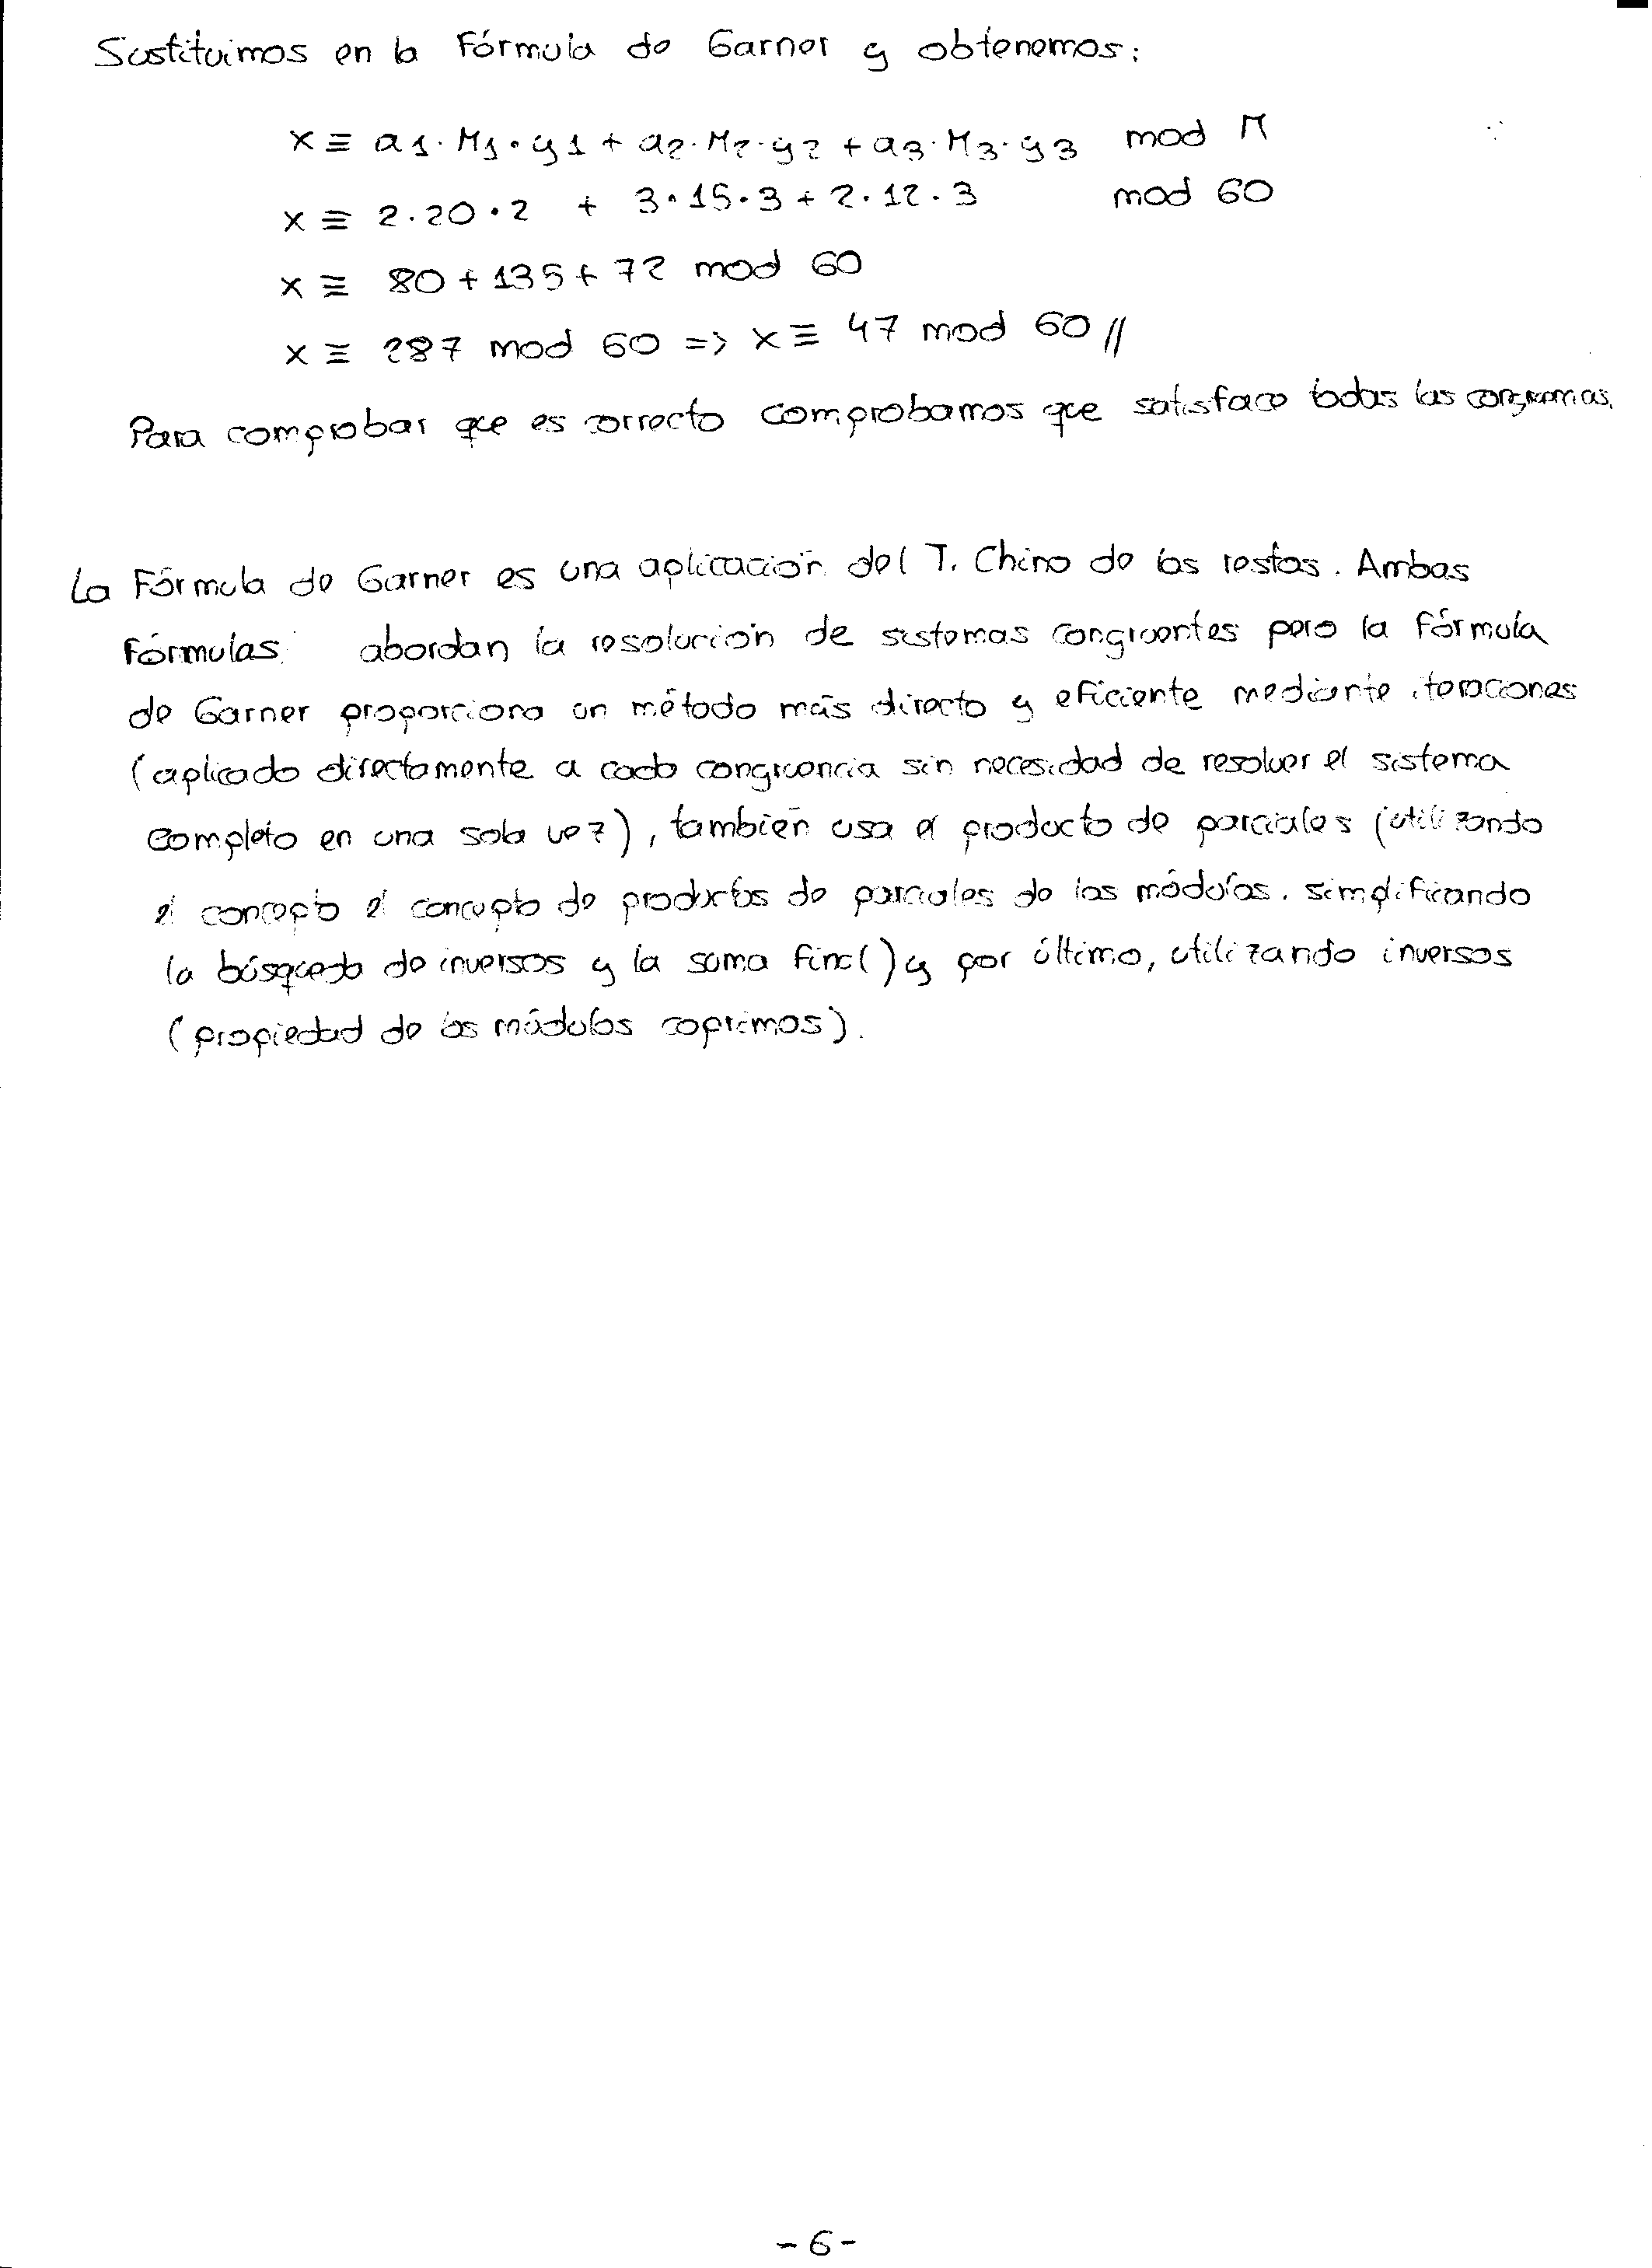 Sustituimos en la Fórmula de Garner y obtenemos:
x ≡ a1·M1·y1 + a2·M2·y2 + a3·M3·y3 mod M
x ≡ 2·20·2 + 3·15·3 + 2·12·3 mod 60
x ≡ 80 + 135 + 72 mod 60
x ≡ 287 mod 60 => x ≡ 47 mod 60 //
Para comprobar que es correcto comprobamos que satisface todas las
La Fórmula de Garner es una aplicación del T. Chino de los restos. Ambas
Fórmulas abordan la resolución de sistemas congruentes pero la Fórmula
de Garner proporciona un método más directo y eficiente mediante iteraciones
(aplicado directamente a cada congruencia sin necesidad de resolver el sistema
completo en una sola vez), también usa el producto de parciales (utilizando
el concepto el concepto de productos de parciales de los módulos. simplificando
la búsqueda de inversos y la suma final) y por último, utilizando inversos
(propiedad de los módulos coprimos).
-6-